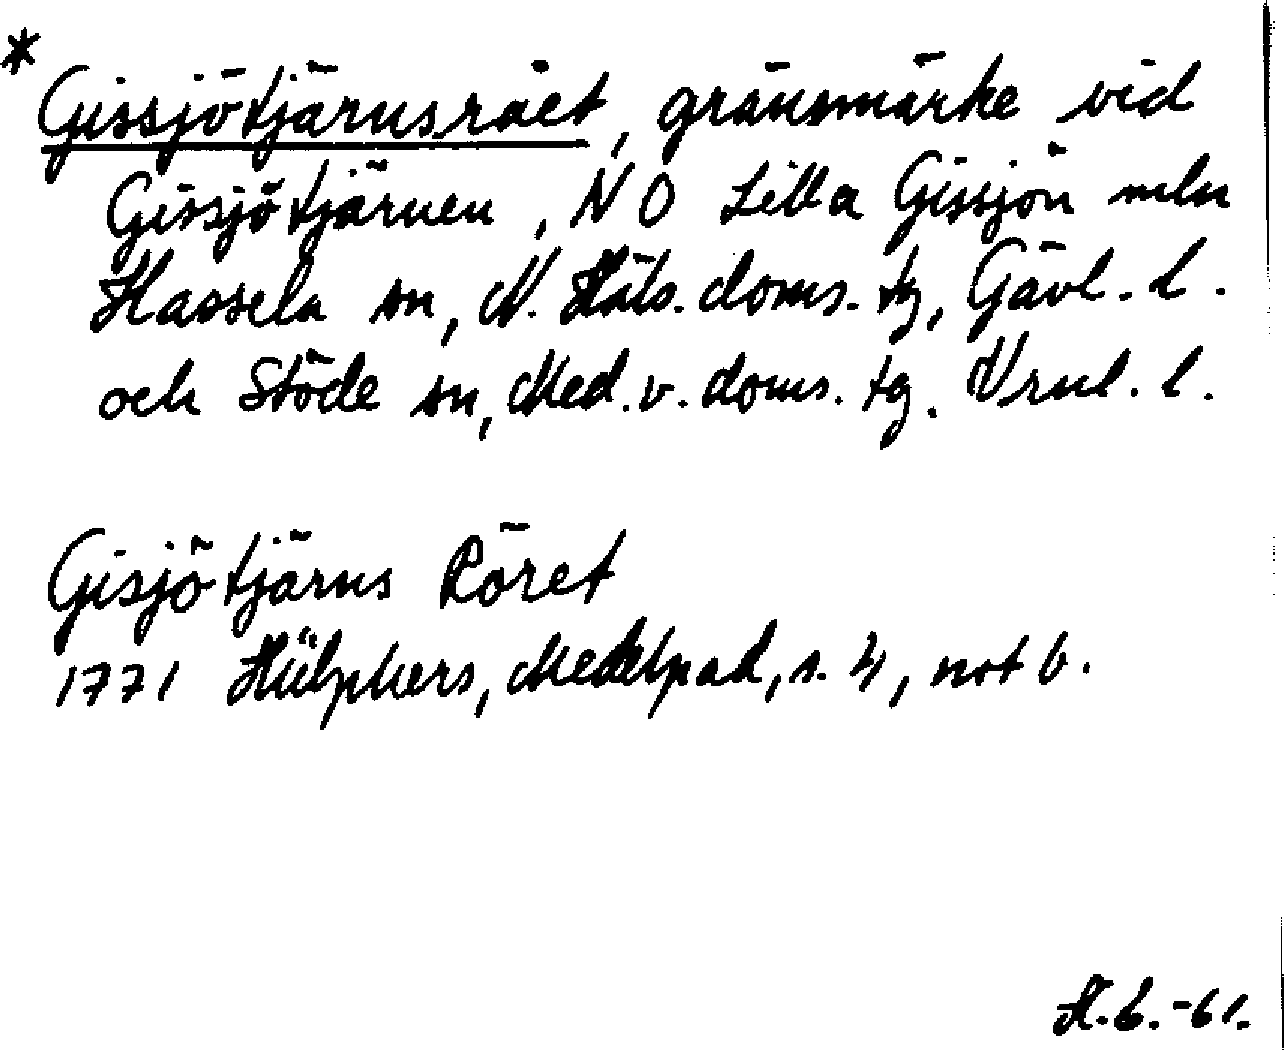 * Gissjötjärnsrået, gränsmärke vid
Gissjötjärnen, NO Lilla Gissjön mln
Hassela sn, N. Häls. doms. tg, Gävl. l.
och Stöde sn, Med. v. doms. tg. Vrnl. l.
Gisjötjärns Röret
1771 Hülphers, Medelpad, s. 4, not b.
-61.